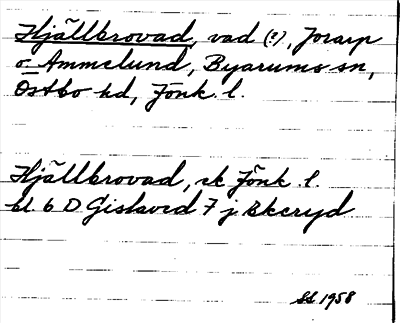 Hjällbrovad, vad (?), Jorarp
o. Ammelund, Byarums sn,
Östbo hd, Jönk. l.
Hjällbrovad, ek Jönk. l.
bl. 6 D Gislaved 7 j Ekeryd
SS 1958